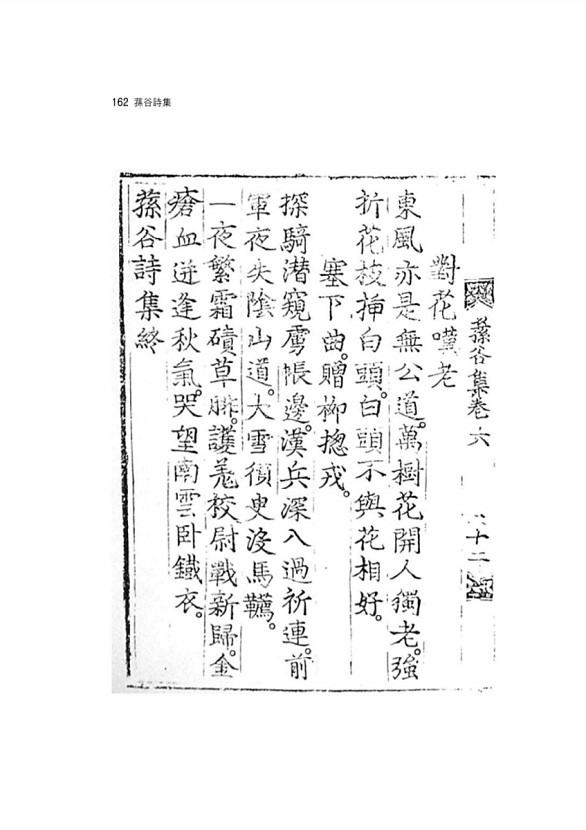 162 蓀谷詩集
蓀谷集卷六
十二
對花嘆老
東風亦是無公道。萬樹花開人獨老。強
折花枝揷白頭。白頭不與花相好。
塞下曲。贈柳摠戎。
探騎潜窺虜帳邊。漢兵深入過祈連。前
軍夜失陰山道。大雪須臾沒馬韉。
一夜繁霜磧草腓。護羌校尉戰新歸。金
瘡血迸逢秋氣。哭望南雲卧鐵衣。
蓀谷詩集終